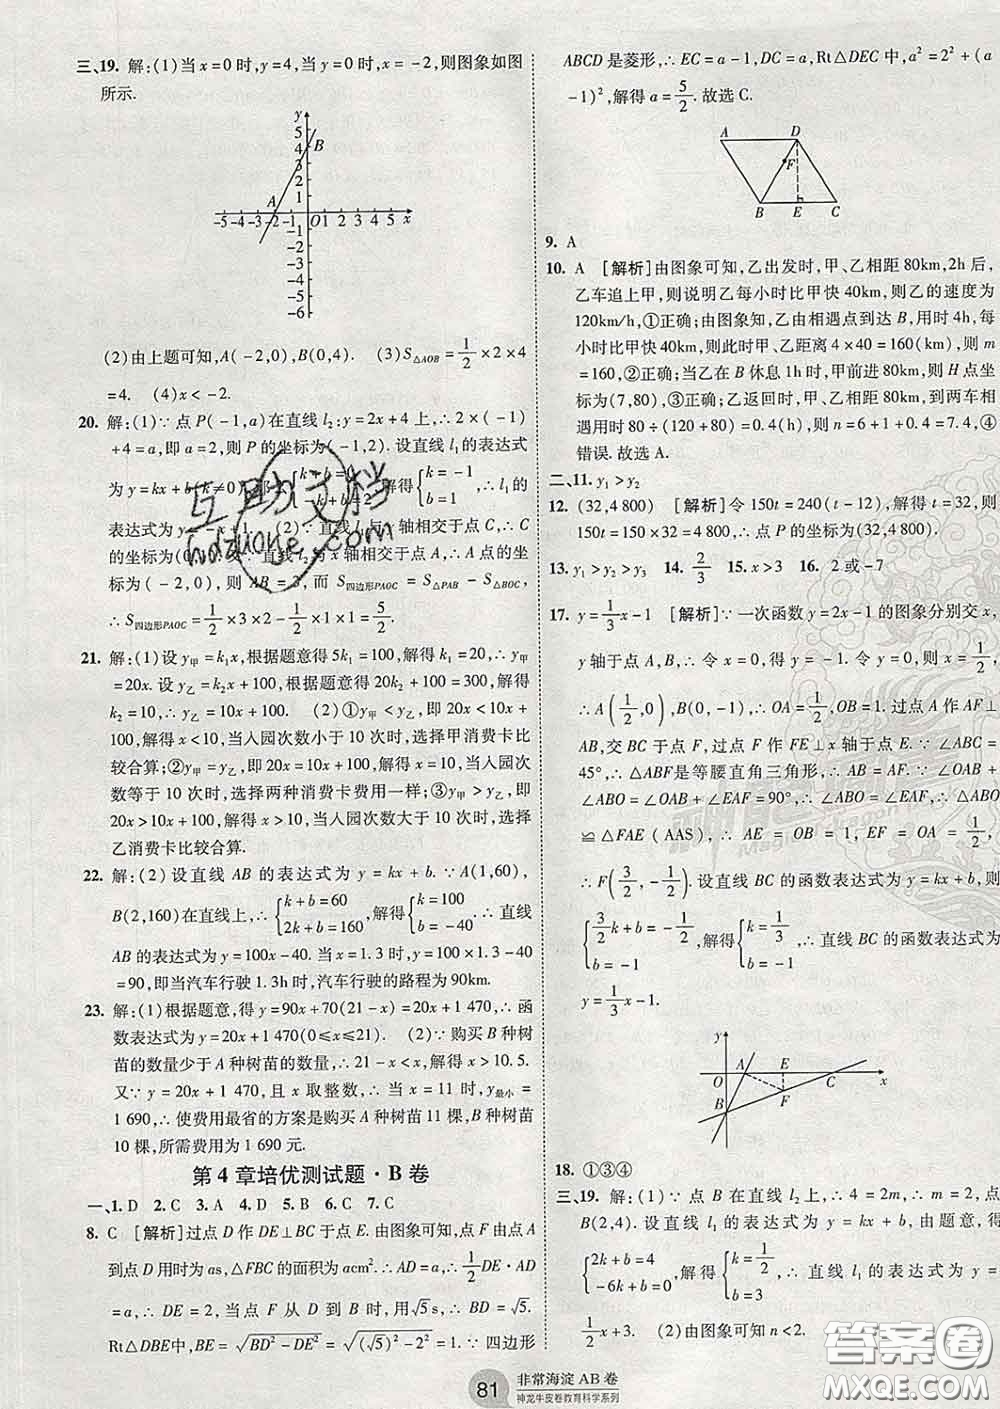 三、19. 解:(1)当x=0时,y=4,当y=0时,x=-2,则图象如图
所示.
y
5
4
3
2
1
B
A
-5 -4 -3 -2 -1 O 1 2 3 4 5 x
-1
-2
-3
-4
-5
-6
(2)由上题可知,A(-2,0),B(0,4). (3)S△AOB=1/2×2×4
=4. (4)x<-2.
20. 解:(1)∵点P(-1,a)在直线l₂:y=2x+4上,∴2×(-1)
+4=a,即a=2,则P的坐标为(-1,2). 设直线l₁的表达式
为y=kx+b(k≠0), {k+b=0 -k+b=2 解得{k=-1 b=1 ∴l₁的
表达式为y=-x+1. (2)∵直线l₁与y轴相交于点C,∴C
的坐标为(0 直线l₂ x轴相交于点A,∴A点的坐
标为(-2,0),则AB=3,而S四边形PAOC=S△PAB-S△BOC,
∴S四边形PAOC=1/2×3×2-1/2×1×1=5/2.
21. 解:(1)设y甲=k₁x,根据题意得5k₁=100,解得k₁=20,∴y甲
=20x. 设y乙=k₂x+100,根据题意得20k₂+100=300,解得
k₂=10,∴y乙=10x+100. (2)①y甲<y乙,即20x<10x+100,
解得x<10,当入园次数小于10次时,选择甲消费卡
比较合算;②y甲=y乙,即20x=10x+100,解得x=10,当入园次
数等于10次时,选择两种消费卡费用一样;③y甲>y乙,即
20x>10x+100,解得x>10,当入园次数大于10次时,选择
乙消费卡比较合算.
22. 解:(2)设直线AB的表达式为y=kx+b. ∵A(1,60),
B(2,160)在直线上,∴{k+b=60 2k+b=160 {k=100 b=-40 ∴直线
AB的表达式为y=100x-40. 当x=1.3时,y=100×1.3-40
=90,即当汽车行驶1.3h时,汽车行驶的路程为90km.
23. 解:(1)根据题意,得y=90x+70(21-x)=20x+1 470,∴函
数表达式为y=20x+1 470(0≤x≤21). (2)∵购买B种树
苗的数量少于A种树苗的数量,∴21-x<x,解得x>10.5.
又∵y=20x+1 470,且x取整数,∴当x=11时,y最小=
1 690,∴使费用最省的方案是购买A种树苗11棵,B种树苗
10棵,所需费用为1 690元.
第4章培优测试题·B卷
一、1. D 2. C 3. A 4. D 5. C 6. C 7. C
8. C [解析]过点D作DE⊥BC于点E. 由图象可知,点F由点A
到点D用时为as,△FBC的面积为acm². ∴AD=a,∴1/2DE·AD
=a,∴DE=2,当点F从D到B时,用√5s,∴BD=√5.
Rt△DBE中,BE=√(BD²-DE²)=√((√5)²-2²)=1. ∵四边形
ABCD是菱形,∴EC=a-1,DC=a,Rt△DEC中,a²=2²+(a
-1)²,解得a=5/2. 故选C.
A D
F
B E C
9. A
10. A [解析]由图象可知,乙出发时,甲、乙相距80km,2h后,
乙车追上甲,则说明乙每小时比甲快40km,则乙的速度为
120km/h,①正确;由图象知,乙由相遇点到达B,用时4h,每
小时比甲快40km,则此时甲、乙距离4×40=160(km),则m
=160,②正确;当乙在B休息1h时,甲前进80km,则H点坐
标为(7,80),③正确;乙返回时,甲、乙相距80km,到两车相
遇用时80÷(120+80)=0.4(h),则n=6+1+0.4=7.4,④
错误. 故选A.
二、11. y₁>y₂
12. (32,4 800) [解析]令150t=240(t-12),解得t=32,则
150t=150×32=4 800,∴点P的坐标为(32,4 800).
13. y₁>y₂>y₃ 14. 2/3 15. x>3 16. 2或-7
17. y=1/3x-1 [解析]∵一次函数y=2x-1的图象分别交x,
y轴于点A,B,∴令x=0,得y=-1. 令y=0,则x=1/2,
∴A(1/2,0),B(0,-1),∴OA=1/2,OB=1. 过点A作AF⊥
AB,交BC于点F,过点F作FE⊥x轴于点E. ∵∠ABC=
45°,∴△ABF是等腰直角三角形,∴AB=AF. ∵∠OAB+
∠ABO=∠OAB+∠EAF=90°,∴∠ABO=∠EAF,∴△ABO
≌△FAE(AAS),∴AE=OB=1,EF=OA=1/2,
∴F(3/2,-1/2). 设直线BC的函数表达式为y=kx+b,
∴{3/2k+b=-1/2 b=-1,解得{k=1/3 b=-1 ∴直线BC的函数表达式为
y=1/3x-1.
y
O A E C x
B F
18. ①③④
三、19. 解:(1)∵点B在直线l₂上,∴4=2m,∴m=2,点
B(2,4). 设直线l₁的表达式为y=kx+b,由题意,得
{2k+b=4 -6k+b=0,解得{k=1/2 b=3 ∴直线l₁的表达式为y=
1/2x+3. (2)由图象可知n<2.
81
非常海淀AB卷
神龙牛皮卷教育科学系列
互助文档
hdzuoye.com
答案圈
MXQE.COM